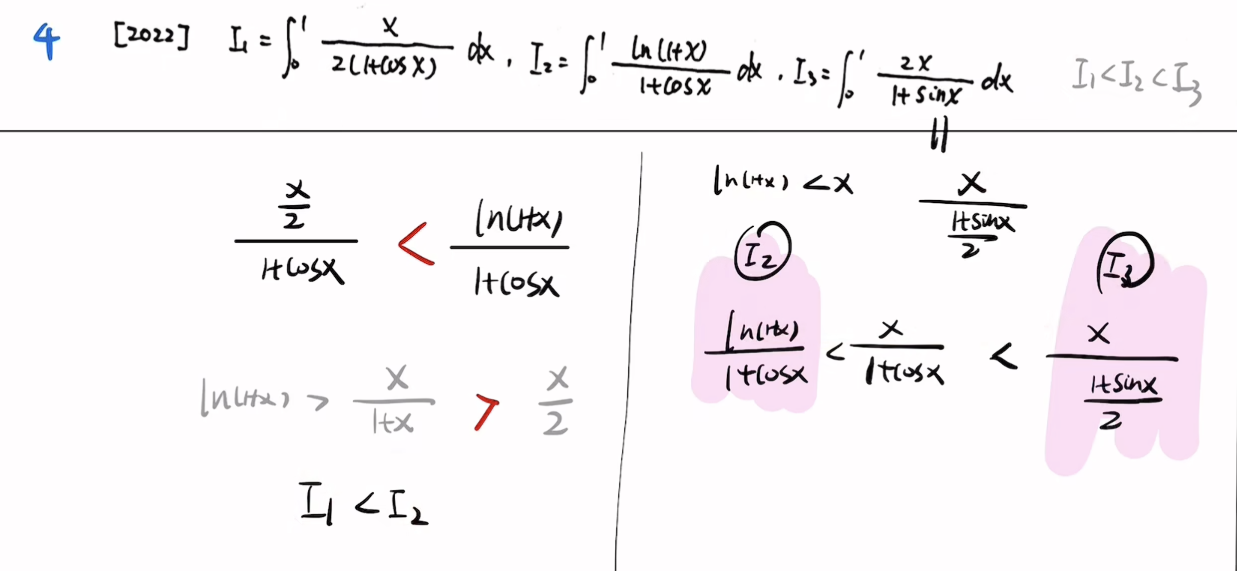 4 [2022] I₁ = ∫₀¹ x/(2(1+cosx)) dx, I₂ = ∫₀¹ ln(1+x)/(1+cosx) dx, I₃ = ∫₀¹ 2x/(1+sinx) dx I₁<I₂<I₃
||
(x/2)/(1+cosx) < ln(1+x)/(1+cosx)
ln(1+x) > x/(1+x) > x/2
I₁ < I₂
ln(1+x) < x x/((1+sinx)/2)
I₂ I₃
ln(1+x)/(1+cosx) < x/(1+cosx) < x/((1+sinx)/2)